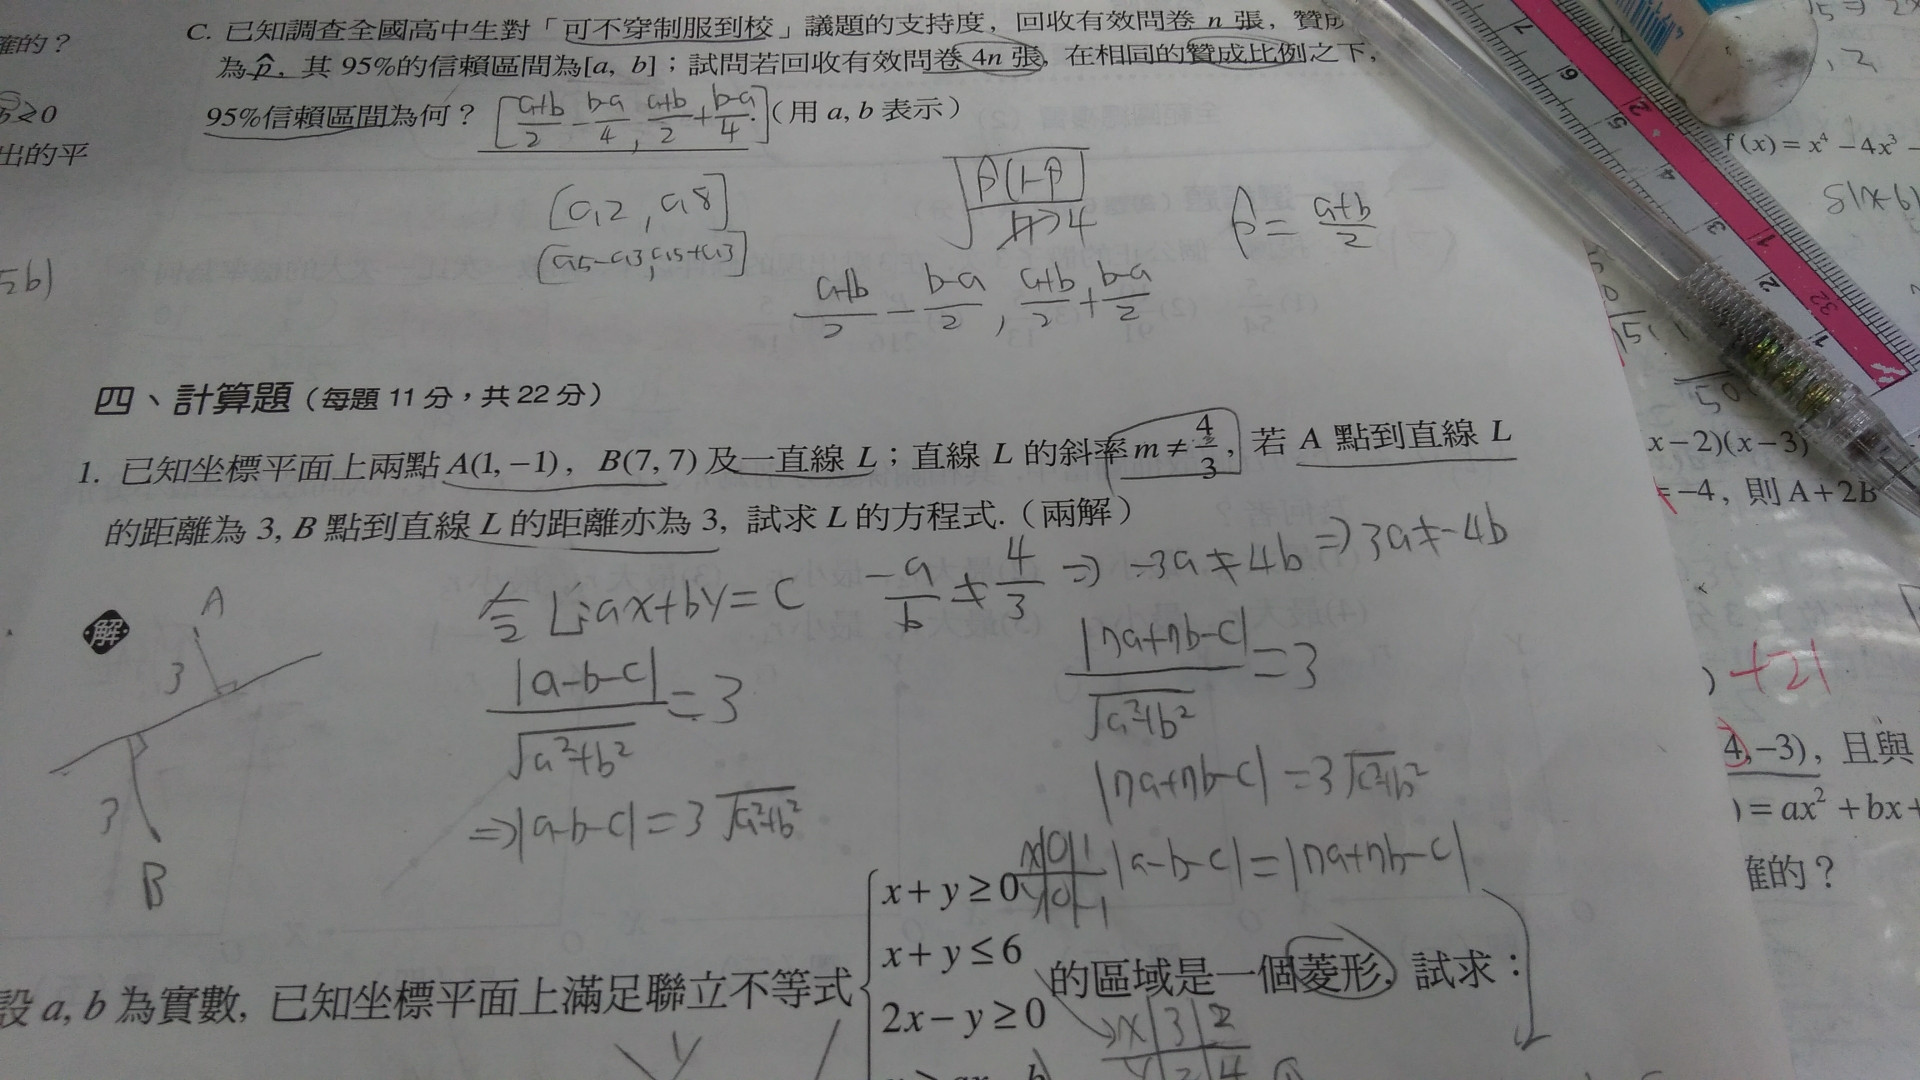 確的？
≥0
出的平
C. 已知調查全國高中生對「可不穿制服到校」議題的支持度，回收有效問卷 n 張，贊成
為p̂，其 95%的信賴區間為[a, b]；試問若回收有效問卷 4n 張，在相同的贊成比例之下，
95%信賴區間為何？[(a+b)/2 - (b-a)/4, (a+b)/2 + (b-a)/4]（用 a, b 表示）
[0.2, 0.8]
[0.5-0.3, 0.5+0.3]
p̂ = (a+b)/2
(a+b)/2 - (b-a)/2, (a+b)/2 + (b-a)/2
四、計算題（每題 11 分，共 22 分）
1. 已知坐標平面上兩點 A(1, −1)，B(7, 7) 及一直線 L；直線 L 的斜率 m ≠ 4/3，若 A 點到直線 L
的距離為 3, B 點到直線 L 的距離亦為 3, 試求 L 的方程式.（兩解）
解
令 L: ax+by=c -a/b ≠ 4/3 ⇒ -3a ≠ 4b ⇒ 3a ≠ -4b
A
3
3
B
|a-b-c|/√(a²+b²) = 3
|7a+7b-c|/√(a²+b²) = 3
⇒ |a-b-c| = 3√(a²+b²)
|7a+7b-c| = 3√(a²+b²)
|a-b-c| = |7a+7b-c|
設 a, b 為實數, 已知坐標平面上滿足聯立不等式
x + y ≥ 0
x + y ≤ 6
2x − y ≥ 0
的區域是一個菱形, 試求：
x 0 1
y 0 -1
x 3 2
y 3 4
y
f (x) = x⁴ − 4x³ −
x − 2)(x − 3)
= −4, 則 A + 2B
+21
4, −3), 且與
) = ax² + bx +
確的？